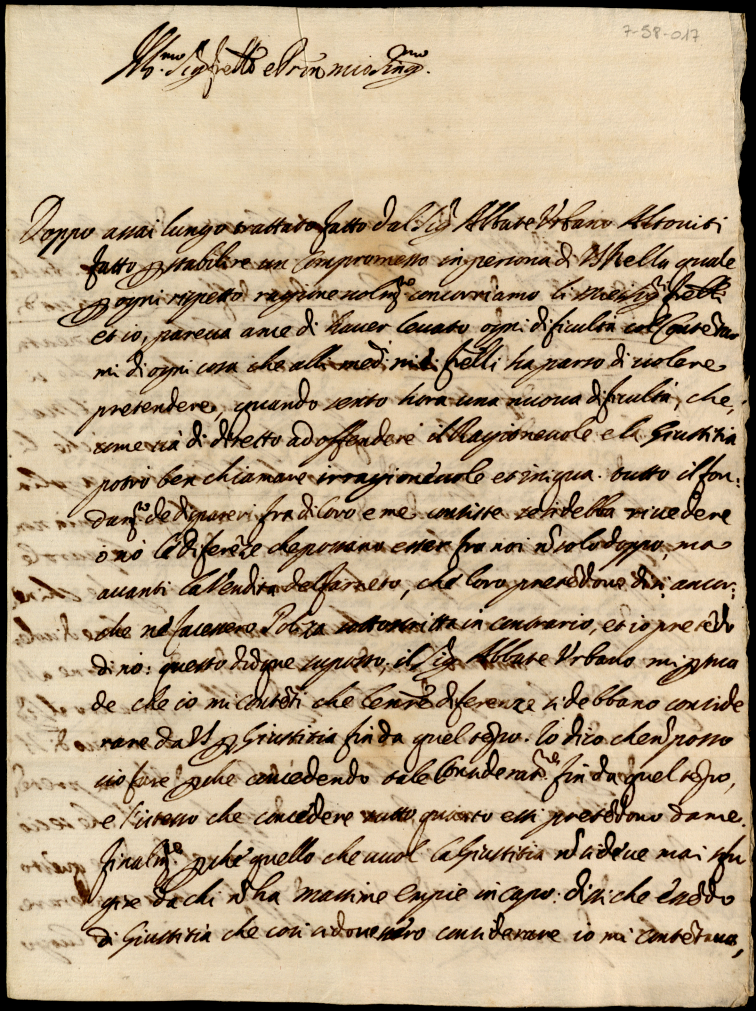 7-58-017
Ill.mo Sig.r fratello e Pron mio Sing.mo
Doppo assai lungo trattato fatto dal Sig.r Abbate Urbano Altoviti
fatto p stabilire un Compromesso in persona di VS Nella quale
p ogni rispetto ragionevolm.te concorriamo li miei Sig.ri fr̃elli
et io, pareva a me di haver levato ogni dificultà col Contẽtar
mi di ogni cosa che alli medmi fr̃elli ha parso di volere
pretendere, quando sento hora una nuova dificultà, che,
come và di diretto ad offendere il Ragionevole e la Giustitia
potrò ben chiamare irragionevole et iniqua. tutto il fon:
dam.to de dispareri fra di loro e me consiste se si debba rivedere
ò nò le diferẽze che possano esser fra noi nõ solo doppo, ma
avanti la Vendita del farneto, che loro pretẽdono di sì ancor:
che ne facessero Poliza sottoscritta in contrario, et io pretẽdo
di nò: questo dũque suposto, il Sig.r Abbate Urbano mi p̃sua
de che io mi contẽti che le nr̃e diferenze si debbano conside
rare da VS p Giustitia fin da quel tẽpo. Io dico che nõ posso
cio fare p che concedendo tale Consideraz.ne fin da quel tẽpo,
e l'istesso che concedere tutto quanto essi pretẽdono da me.
finalm.te p che quello che vuol la Giustitia nõ si deve mai sfu
gire da chi nõ ha Massime empie in capo: dissi che quãdo
di Giustitia che così si dovessero considerare io mi contẽtavo,